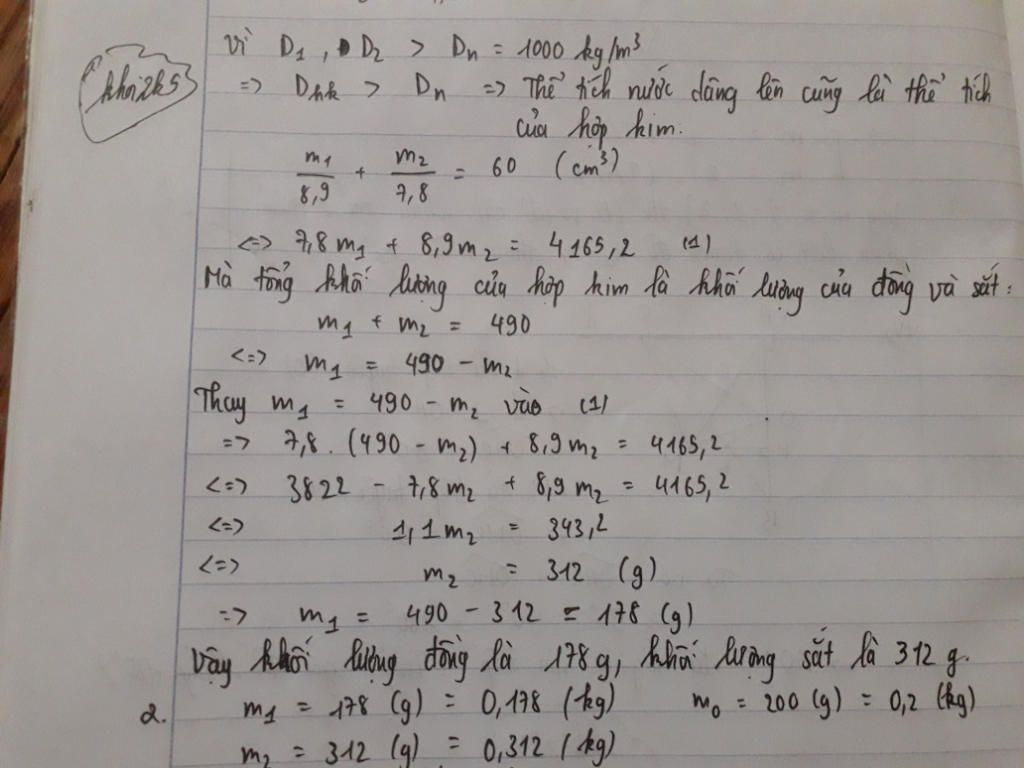 khoi2k5
Vì D1, D2 > Dn = 1000 kg/m³
=> Dhk > Dn => Thể tích nước dâng lên cũng là thể tích
của hợp kim.
m1/8,9 + m2/7,8 = 60 (cm³)
<=> 7,8m1 + 8,9m2 = 4165,2 (1)
Mà tổng khối lượng của hợp kim là khối lượng của đồng và sắt:
m1 + m2 = 490
<=> m1 = 490 - m2
Thay m1 = 490 - m2 vào (1)
=> 7,8. (490 - m2) + 8,9m2 = 4165,2
<=> 3822 - 7,8m2 + 8,9m2 = 4165,2
<=> 1,1m2 = 343,2
<=> m2 = 312 (g)
=> m1 = 490 - 312 = 178 (g)
Vậy khối lượng đồng là 178g, khối lượng sắt là 312 g.
2. m1 = 178 (g) = 0,178 (kg) m0 = 200 (g) = 0,2 (kg)
m2 = 312 (g) = 0,312 (kg)